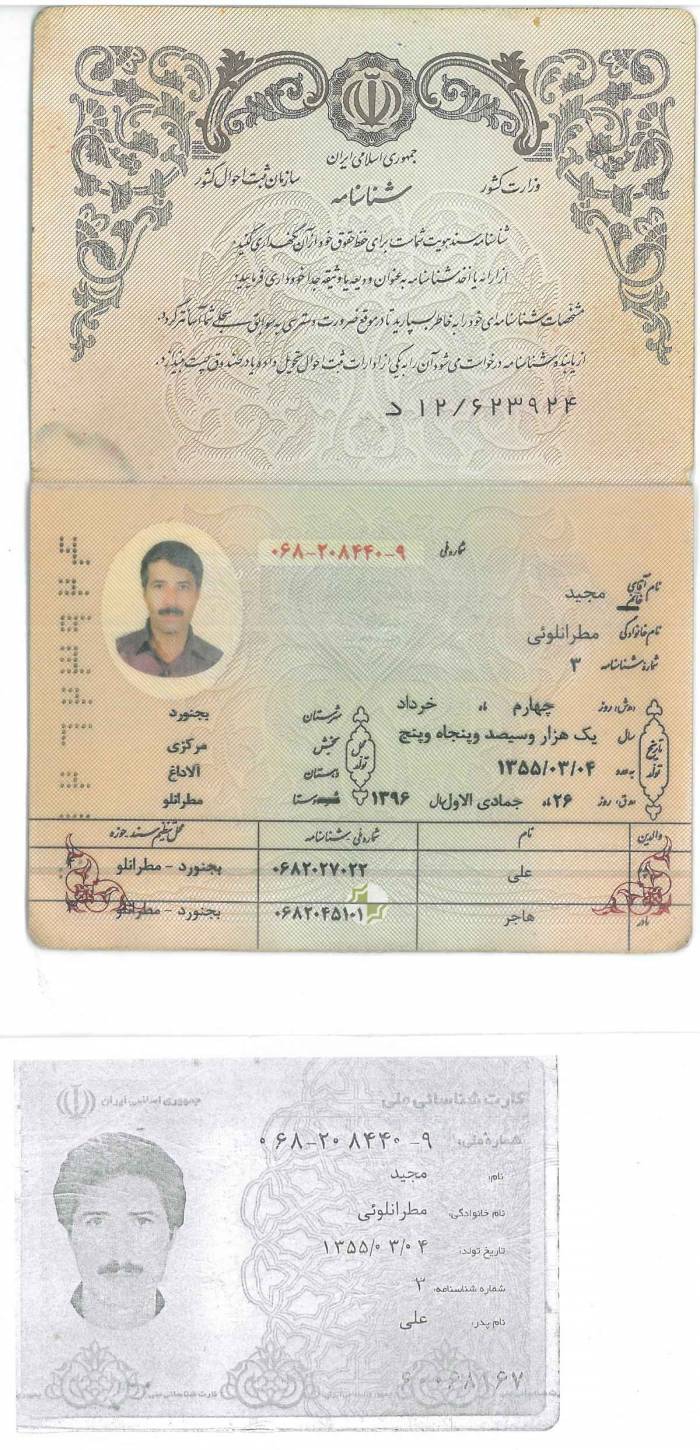 جمهوری اسلامی ایران
وزارت کشور
سازمان ثبت احوال کشور
شناسنامه
شناسنامه سند هویت شماست برای حفظ حقوق خود از آن نگهداری کنید.
از ارائه یا اخذ شناسنامه به عنوان ودیعه یا وثیقه جدا خودداری فرمایید.
مشخصات شناسنامه‌ای خود را به خاطر بسپارید تا در موقع ضرورت دسترسی به سوابق سجلی شما آسانتر گردد.
از یابنده شناسنامه درخواست می شود آن را به یکی از ادارات ثبت احوال تحویل داده یا در صندوق پست بیندازد.
د ۱۲/۶۲۳۹۲۴
شماره ملی ۰۶۸-۲۰۸۴۴۰-۹
نام آقای خانم مجید
نام خانوادگی مطرانلوئی
شماره شناسنامه ۳
تاریخ تولد
روز چهارم ماه خرداد
سال یک هزار وسیصد وپنجاه وپنج
۱۳۵۵/۰۳/۰۴
روز ۲۶ ماه جمادی الاول سال ۱۳۹۶
محل تولد
شهرستان بجنورد
بخش مرکزی
دهستان آلاداغ
روستا مطرانلو
والدین نام شماره ملی / شناسنامه محل تنظیم سند / حوزه
علی ۰۶۸۲۰۲۷۰۲۲ بجنورد - مطرانلو
مادر هاجر ۰۶۸۲۰۴۵۱۰۱ بجنورد - مطرانلو
کارت شناسائی ملی
جمهوری اسلامی ایران
شماره ملی: ۰۶۸-۲۰۸۴۴۰-۹
نام: مجید
نام خانوادگی: مطرانلوئی
تاریخ تولد: ۱۳۵۵/۰۳/۰۴
شماره شناسنامه: ۳
نام پدر: علی